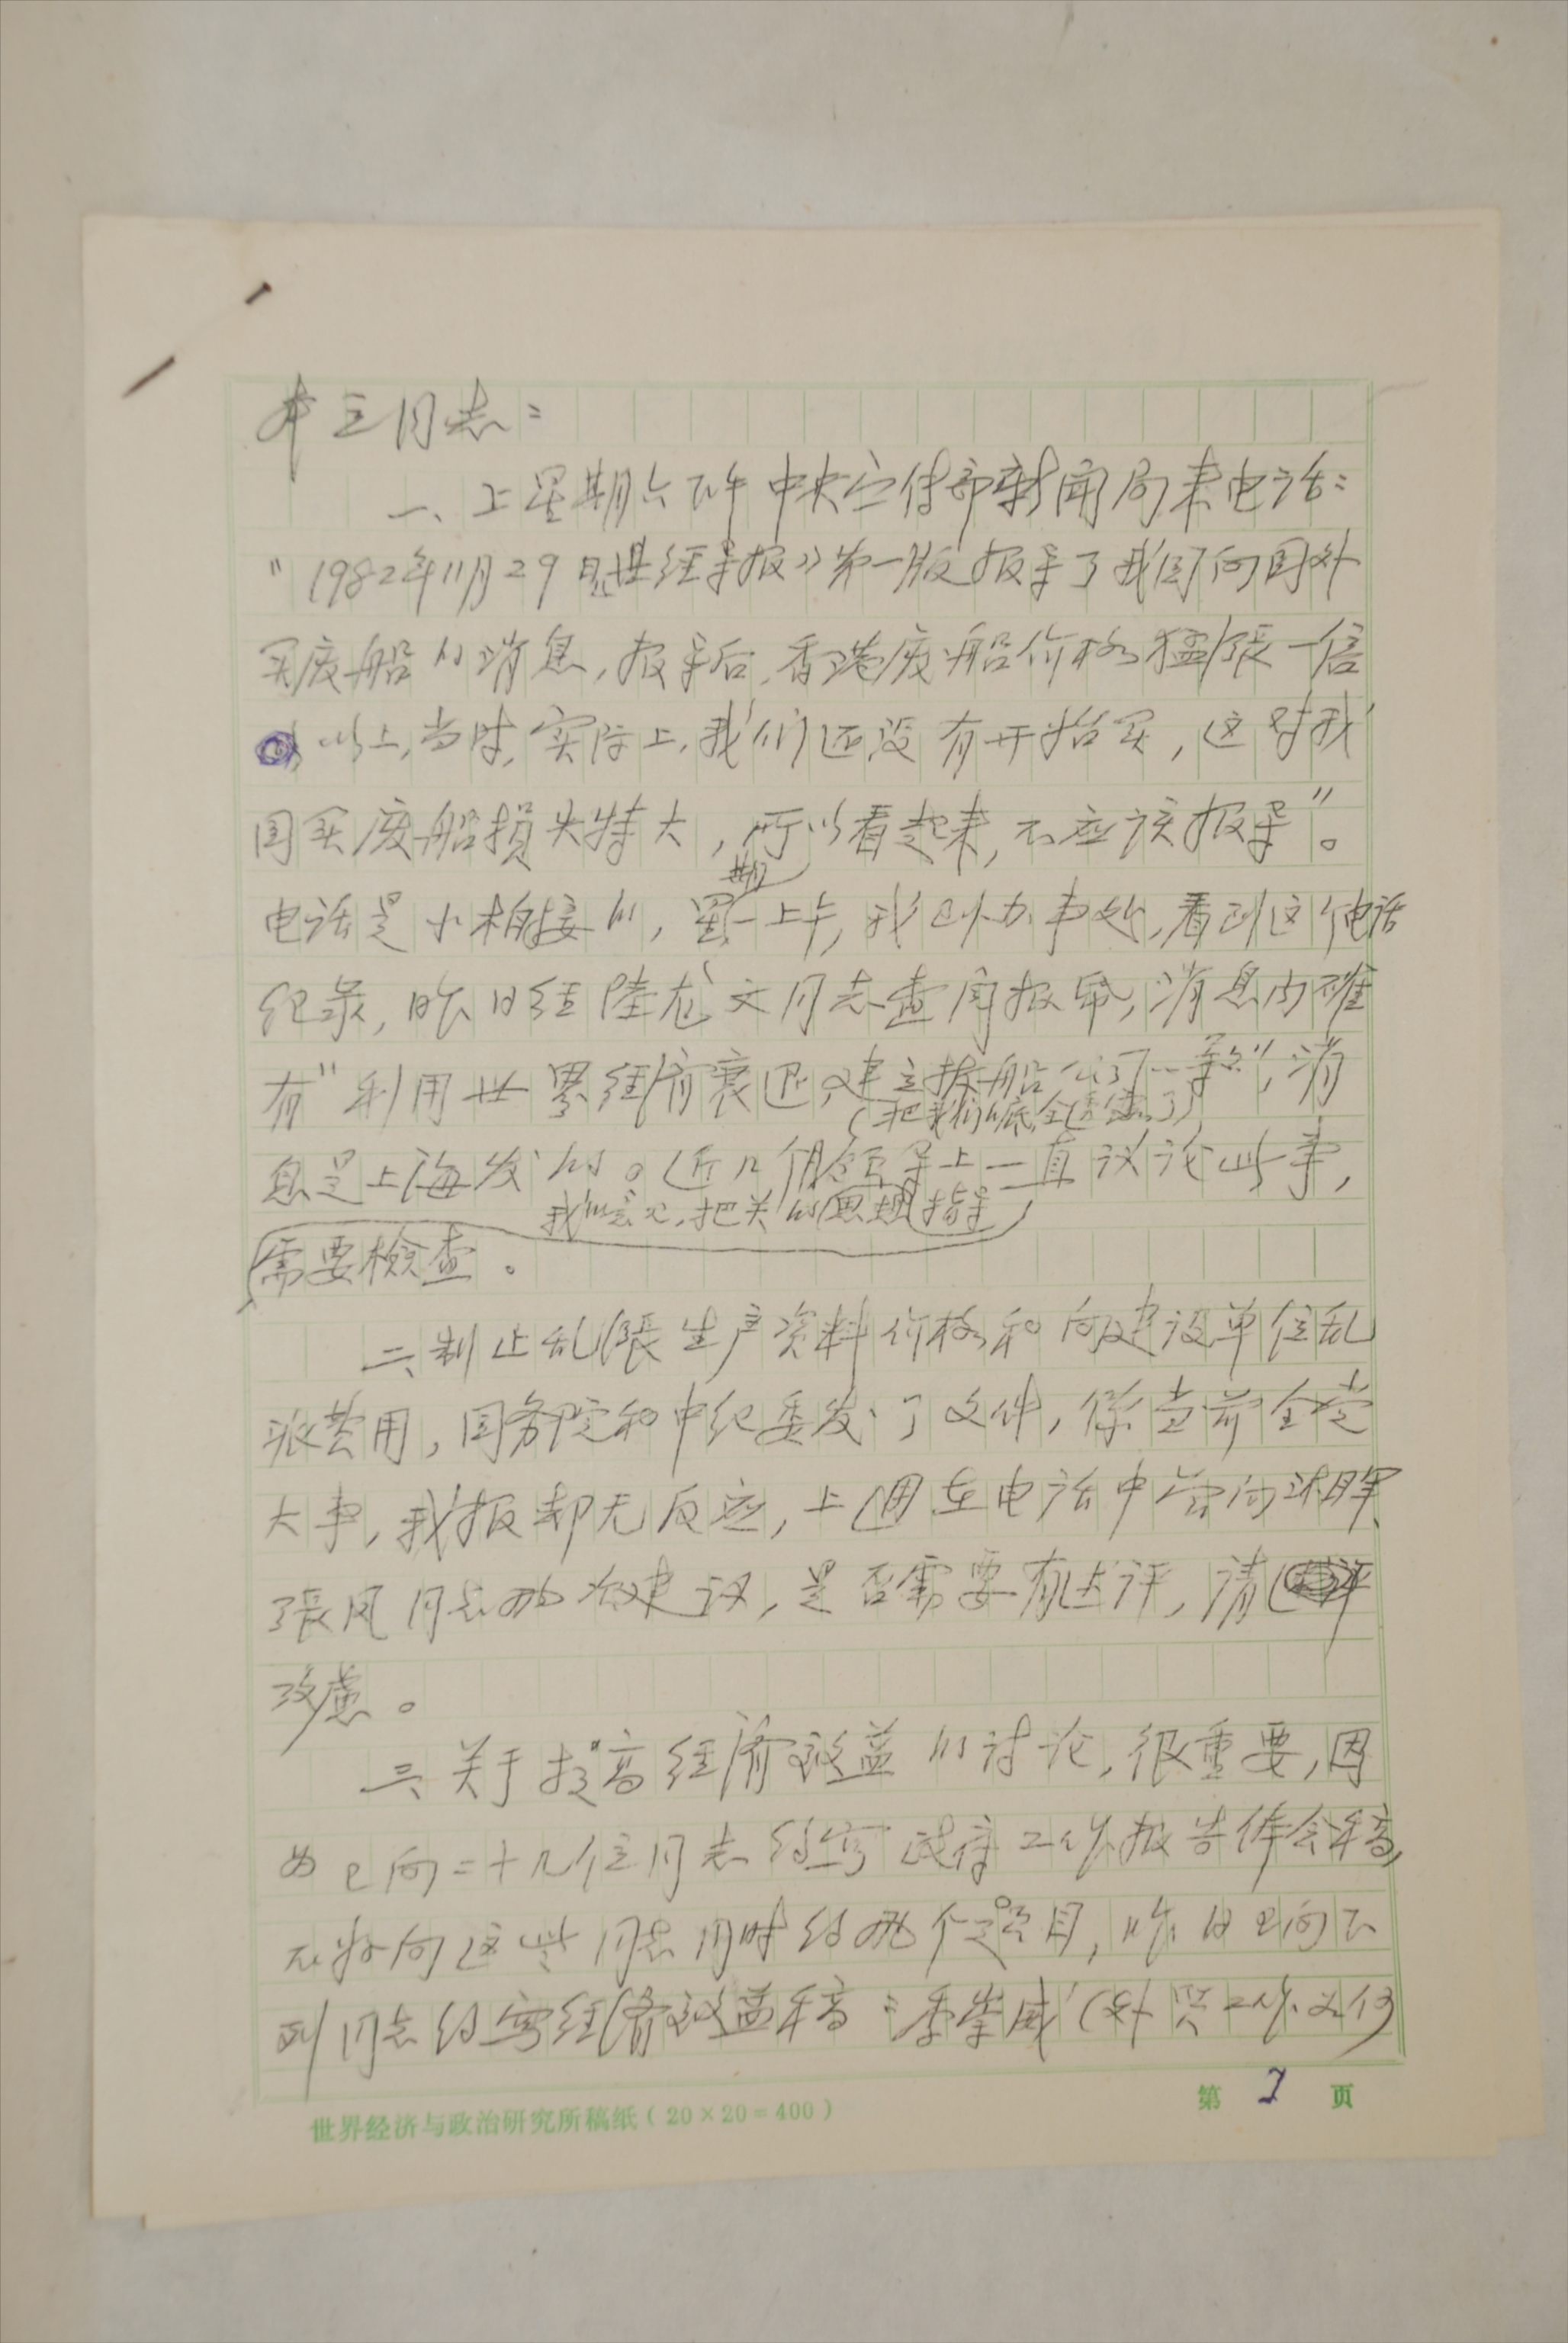 本立同志：
一、上星期六下午中央宣传部新闻局来电话：
"1982年11月29日《世经导报》第一版报导了我国向国外
买废船的消息，报导后，香港废船价格猛涨一倍
以上，当时，实际上，我们还没有开始买，这对我
国买废船损失特大，所以看起来，不应该报导"。
电话是小相接的，星期一上午，我到办事处，看到这个电话
纪录，昨日经陸文同志查阅报纸，消息内确
有"利用世界经济衰退，建立拆船公司……等"，消
（把我们的底全透露了）
息是上海发的。近几个月领导上一直议论此事，
我的意见，把关的思想指导
需要检查。
二、制止乱涨生产资料价格和向建设单位乱
派费用，国务院和中纪委发了文件，係当前全党
大事，我报却无反应，上週在电话中曾向
張凤同志两次建议，是否需要有述评，请
攷慮。
三、关于提高经济效益的讨论，很重要，因
为已向二十几位同志约写政府工作报告体会稿，
不好向这些同志同时约两个题目，昨日已向下
列同志约写经济效益稿：季崇威（外贸工作如何
世界经济与政治研究所稿纸（20×20＝400）
第 1 页